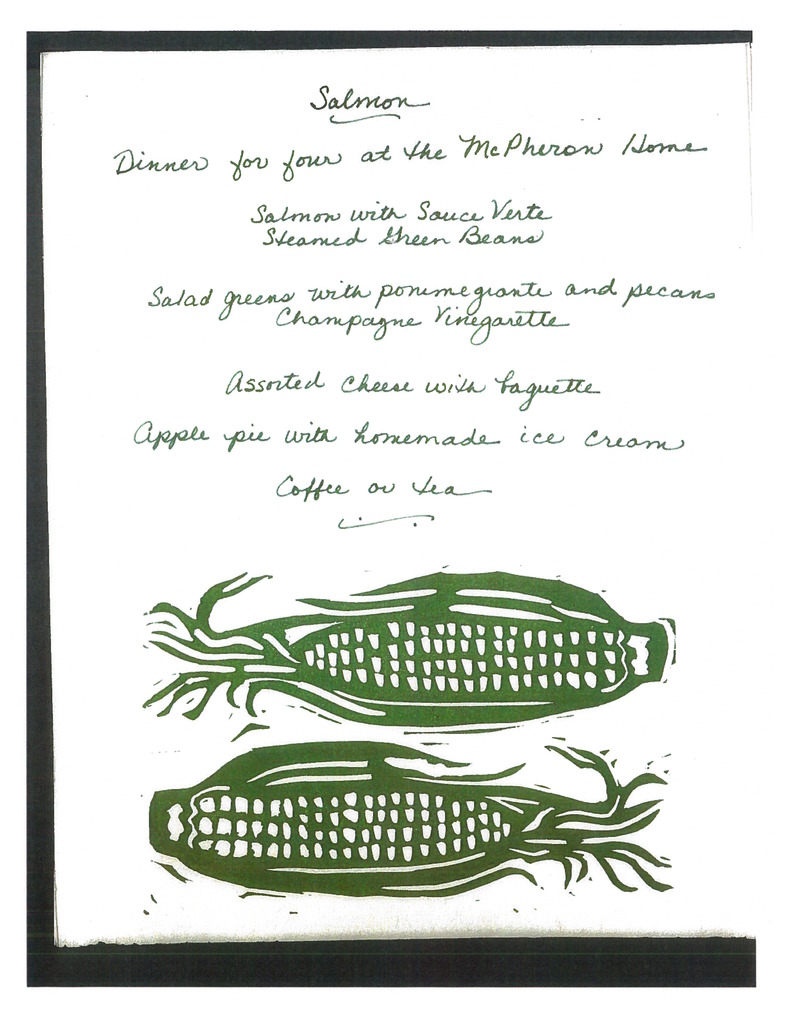 Salmon
Dinner for four at the McPheron Home
Salmon with Sauce Verte
Steamed Green Beans
Salad greens with pommegrante and pecans
Champagne Vinegarette
Assorted Cheese with baguette
Apple pie with homemade ice cream
Coffee or tea